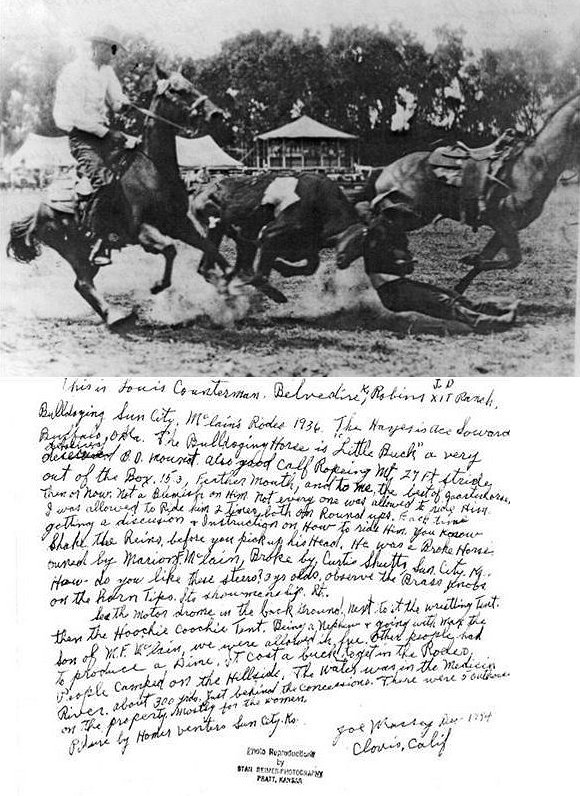 This is Louis Counterman. Belvedire, K, Robins J.D XIT Ranch.
Bulldoging Sun City, McLain's Rodeo 1936. The Hayes is Ace Soward
Buffalo, Okla. The Bulldoging Horse is "Little Buck" a very
B.D. mount. also good Calf Ropeing Mt. 27 Ft stride
out of the Box. 15.3, Feather Mouth, and to me, the best of quarterhorse,
Then or Now. Not a Blemish on Him. Not every one was allowed to ride Him.
I was allowed to Ride him 2 times, both on Round ups. Each time
getting a discusion & Instruction on How to ride Him. You Know
Shake the Reins, before you pick up his Head. He was a Broke Horse.
owned by Marion F. McLain, Broke by Curtis Shutts, Sun City, Ks.
How do you like those steers? 3 yr olds, observe the Brass Knobs
on the Horn Tips. Its showmanship.
See the Motor drome in the back Ground, Next to it the wrestling Tent.
than the Hoochie Coochie Tent. Being a Nephew & going with Max the
son of M.F. McLain, we were allowed in, free. Other people had
to produce a Dime. It cost a buck to get in the Rodeo,
People Camked on the Hillside. The water was in the Medicin
River, about 300 yrds. Just behind the concessions. There were 2 outhouses
on the property, mostly for the women.
Picture by Homer Venters Sun City. Ks.
Joe Massey Dec 1994
Clovis, Calif
Photo Reproductions
by
STAN REIMER-PHOTOGRAPHY
PRATT, KANSAS